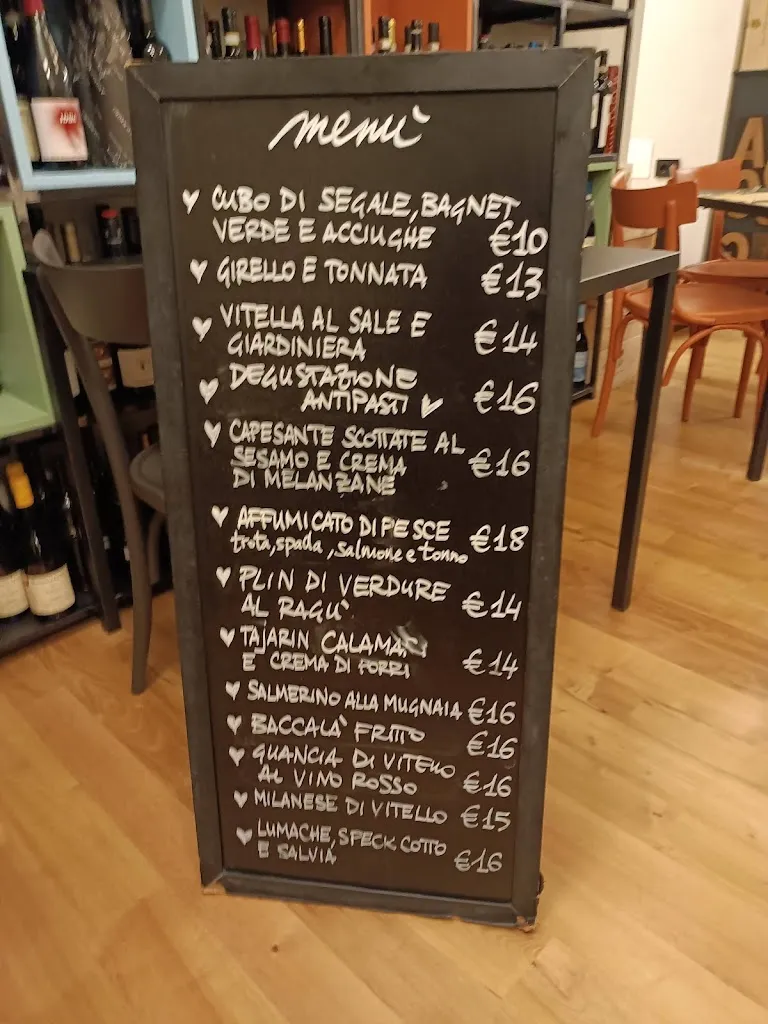 menù
♥ CUBO DI SEGALE, BAGNET
VERDE E ACCIUGHE €10
♥ GIRELLO E TONNATA €13
♥ VITELLA AL SALE E
GIARDINIERA €14
♥ DEGUSTAZIONE
ANTIPASTI €16
♥ CAPESANTE SCOTTATE AL
SESAMO E CREMA €16
DI MELANZANE
♥ AFFUMICATO DI PESCE €18
trota, spada, salmone e tonno
♥ PLIN DI VERDURE
AL RAGU' €14
♥ TAJARIN CALAMARI
E CREMA DI PORRI €14
♥ SALMERINO ALLA MUGNAIA €16
♥ BACCALA' FRITTO €16
♥ GUANCIA DI VITELLO
AL VINO ROSSO €16
♥ MILANESE DI VITELLO €15
♥ LUMACHE, SPECK COTTO
E SALVIA €16